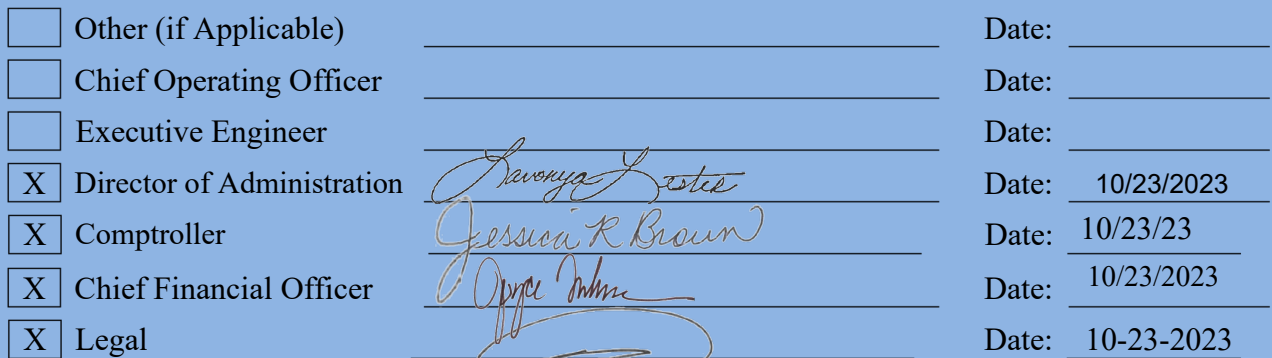 Other (if Applicable) Date:
Chief Operating Officer Date:
Executive Engineer Date:
X Director of Administration Lavonya Lester Date: 10/23/2023
X Comptroller Jessica R Brown Date: 10/23/23
X Chief Financial Officer Date: 10/23/2023
X Legal Date: 10-23-2023